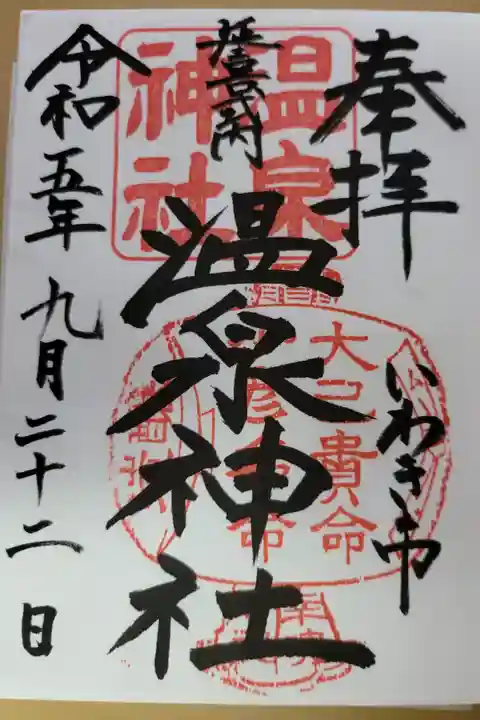 奉拝
いわき市
延喜式内
温泉神社
温泉
神社
大己貴命
少彦名命
令和五年九月二十二日